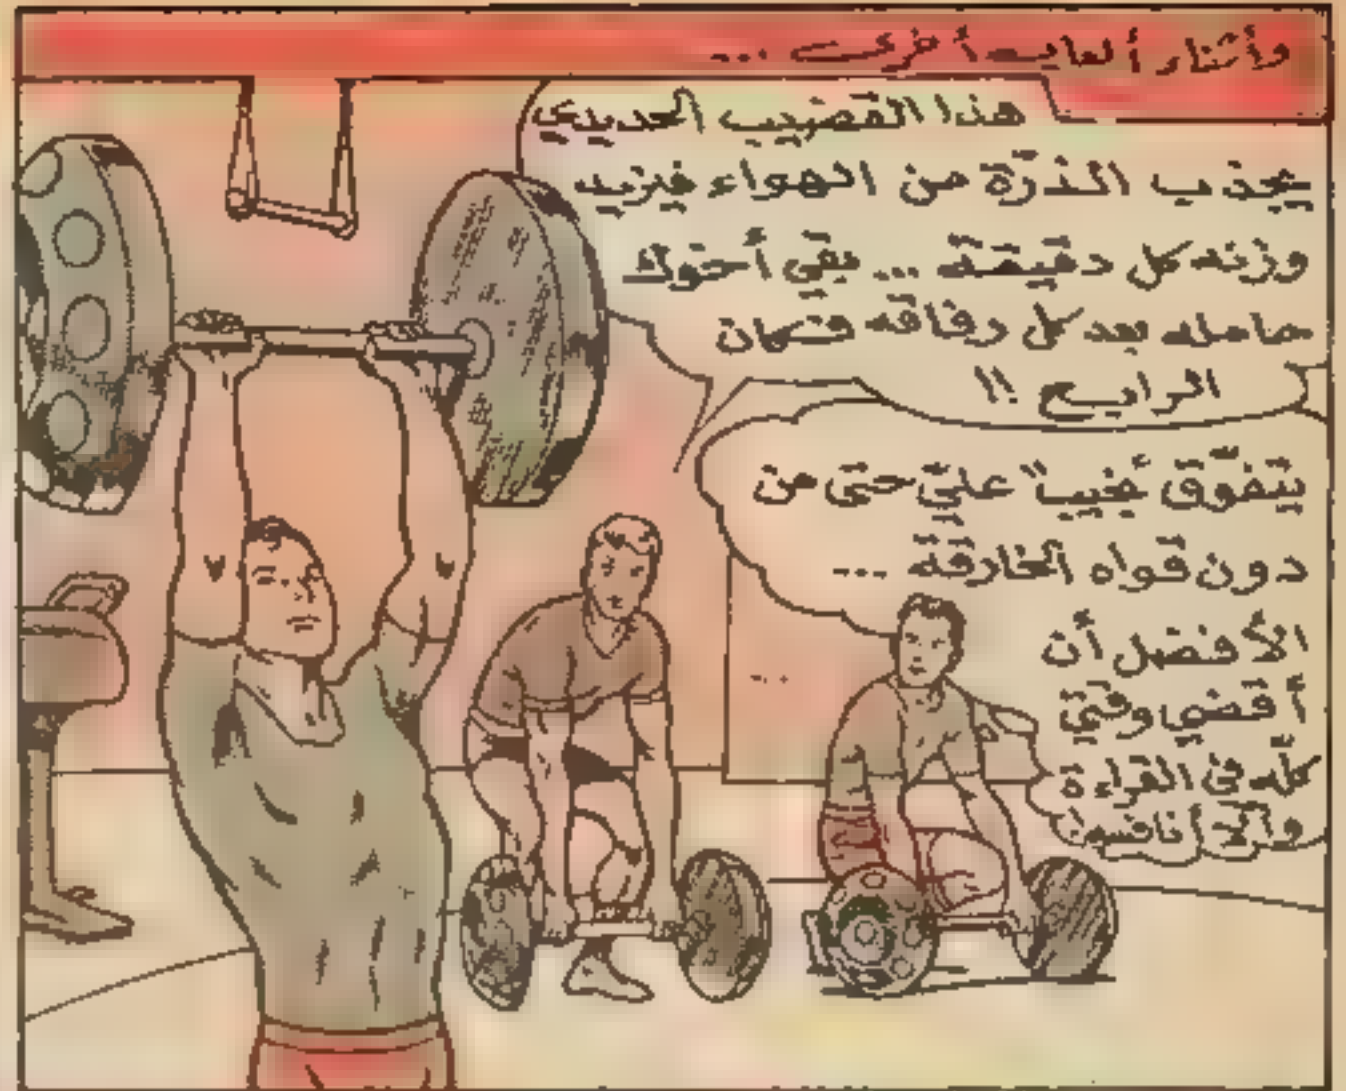 وأثناء ألعاب أخرى ...
هذا القضيب الحديدي
يجذب الذرّة من الهواء فيزيد
وزنه كل دقيقة ... بقي أخوك
حامله بعد كل رفاقه فكان
الرابح !!
يتفوّق نجيب" عليّ حتى من
دون قواه الخارقة ...
الأفضل أن
أقضي وقتي
كلّه في القراءة
وألاّ أنافسه